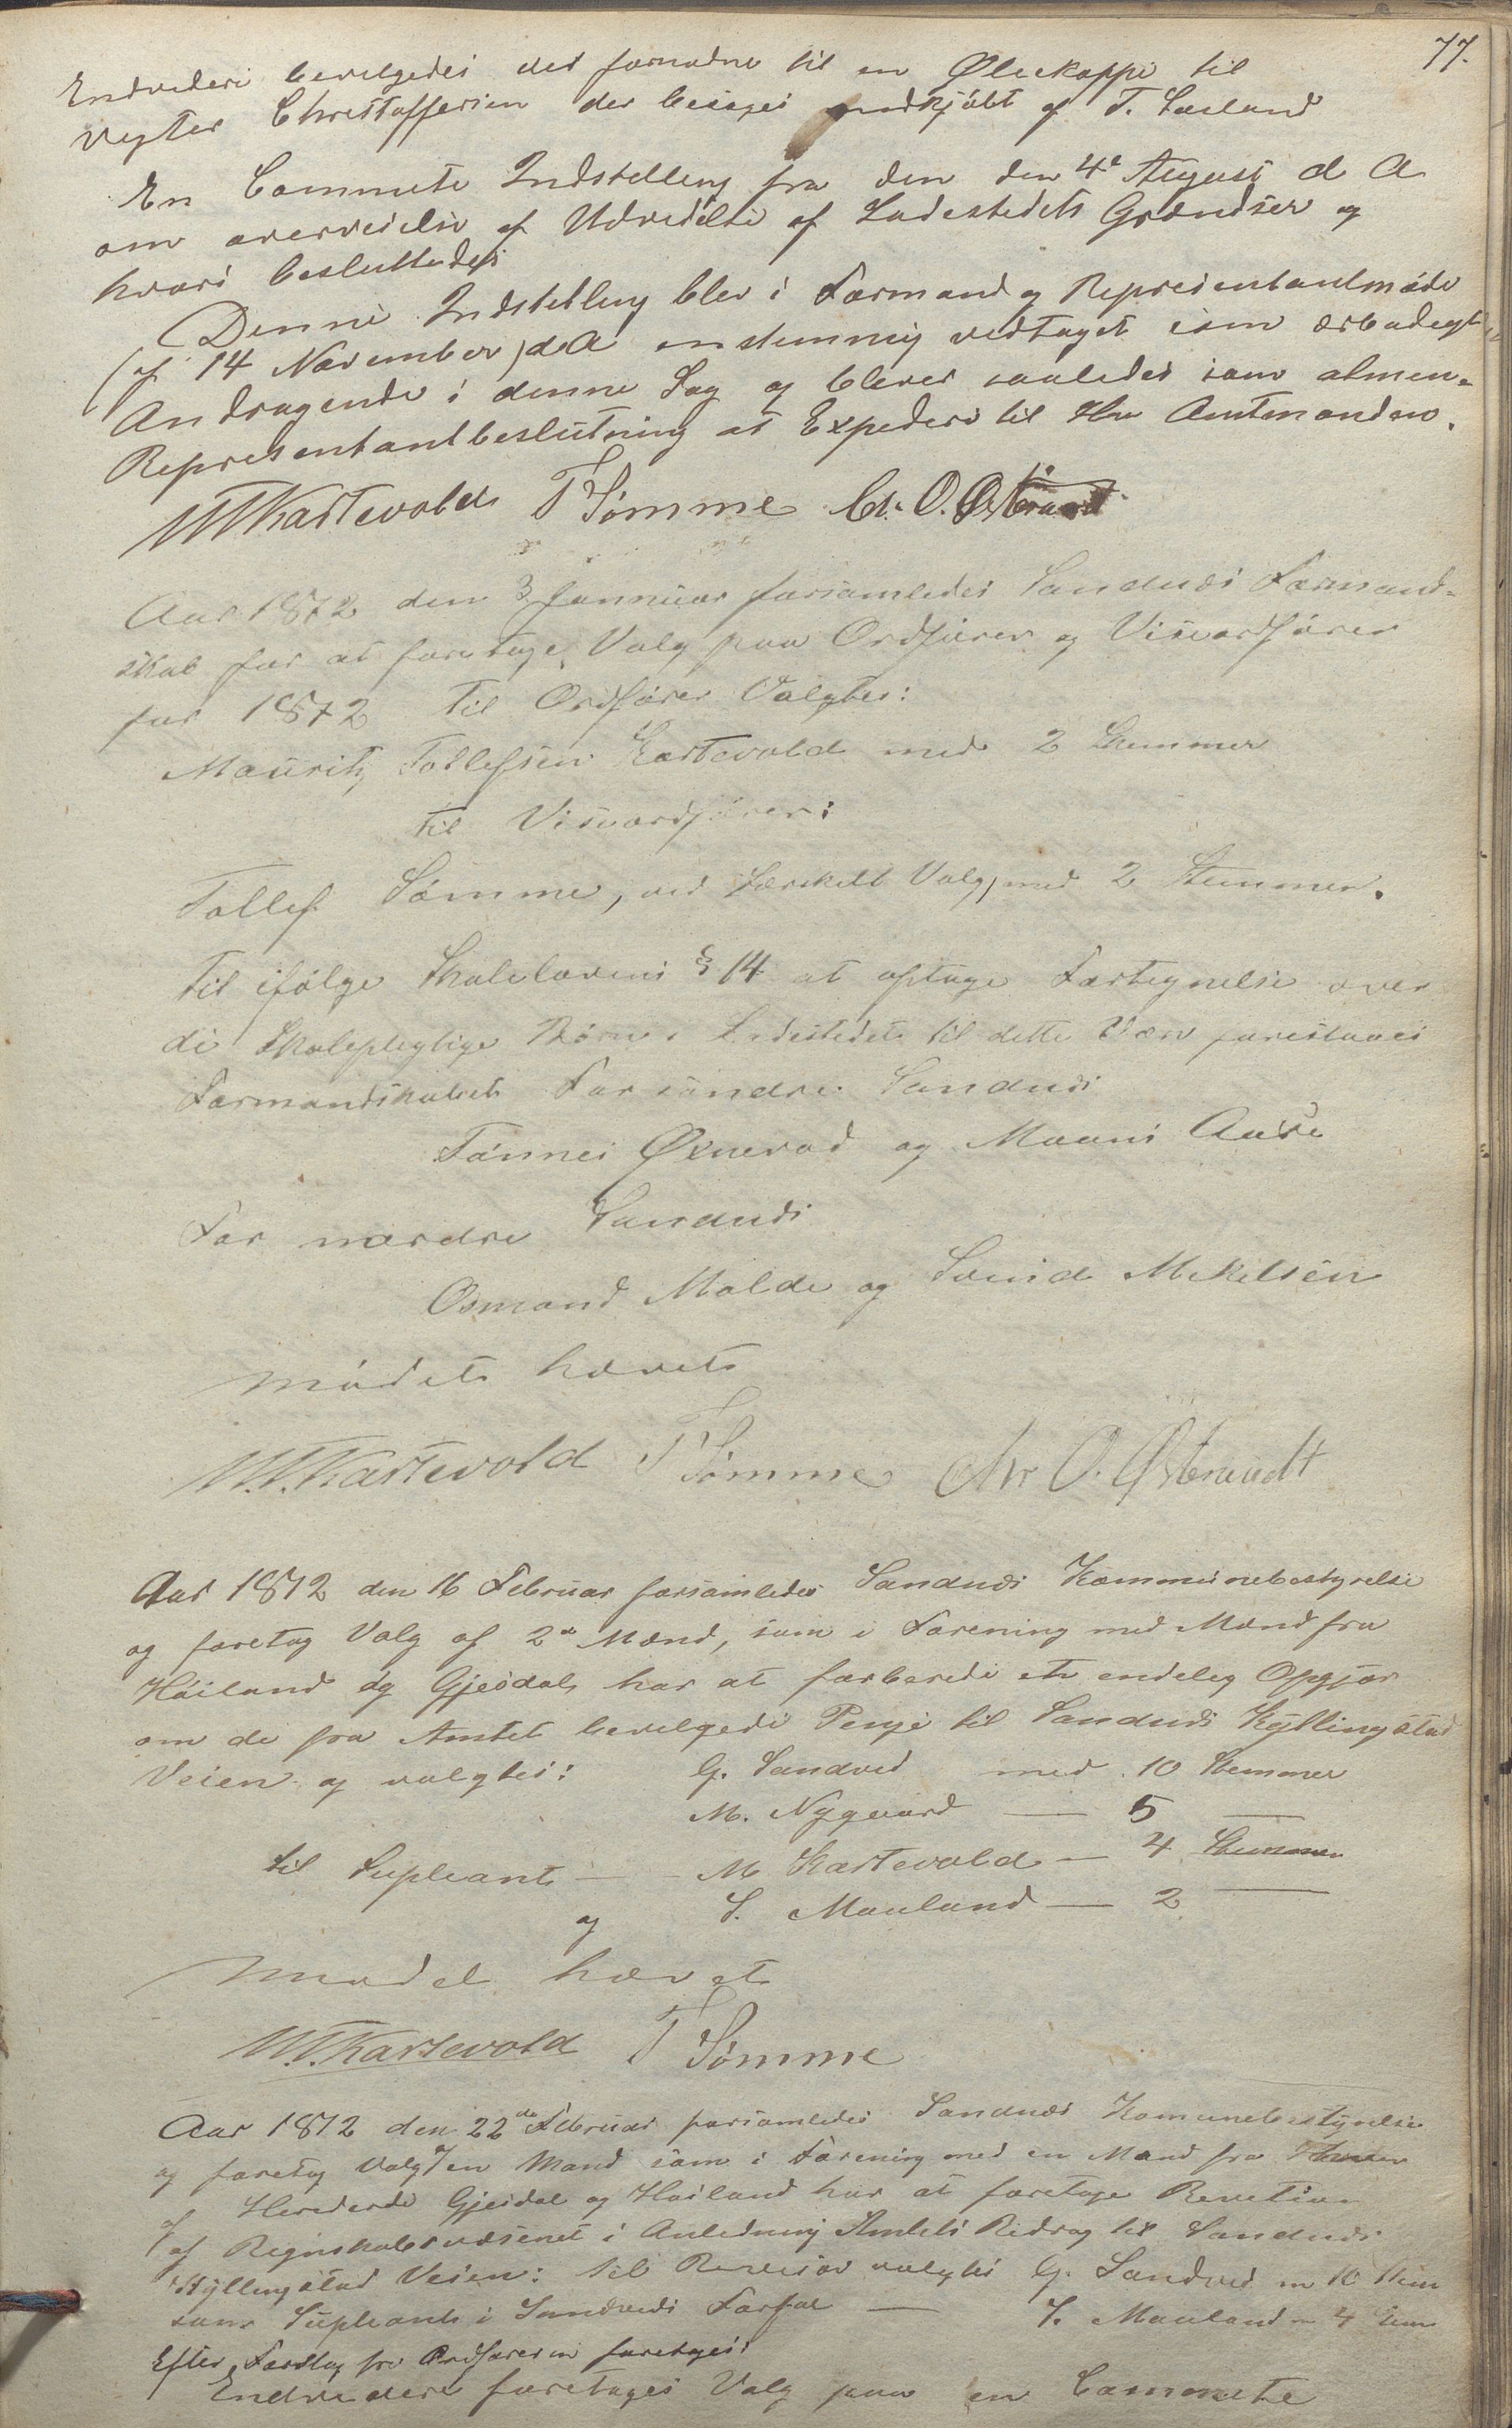 77.
Endvidere bevilgedes det fornødne til en Øliekappe til
Vegter Christoffersen der besøges indkjøbt af T. Lœland
En Commete Indstelling fra den den 4de August d A
om overveielse af Udvidelse af Ladestedets Grændser og
hvori besluttedes
Denne Indstelling blev i Formand og Representantmøde
(af 14 November) d A enstemmig vedtaget som ærbødigt
Andragende i denne Sag og blever saaledes som almen-
Representantbeslutning at Expedere til Hr Amtmanden.
M T Kartevold T Sømme Chr. O. Østrundt
Aar 1872 den 3 Jannuar forsamledes Sandnæs Formand-
skab for at foretage Valg paa Ordfører og Viseordfører
for 1872 Til Ordfører Valgtes:
Mauritz Tollefsen Kartevold med 2 Stemmer
til Viseordfører:
Tollef Sømme, ved Særskilt Valg, med 2 Stemmer.
Til ifølge Skolelovens § 14 at optage Fortegnelse over
de Skolepligtige Børn i Ladestedet til dette Hverv foresloges
Formandskabet For søndre Sandnæs
Tønnes Øxnevad og Maans Aase
For nordre Sandnæs
Osmond Malde og Svend Mikelsen
mødet hævet
M.T. Kartevold T Sømme Chr O. Østrundt
Aar 1872 den 16 Februar forsamledes Sandnæs Kommunebestyrelse
og foretog Valg af 2de Mænd, som i Forening med Mænd fra
Høiland og Gjesdal, har at forberede et endeleg Opgjør
om de fra Amtet bevilgede Penge til Sandnæs Kyllingstad
Veien og valgtes: G. Sandved med 10 Stemmer
M. Nygaard — 5 —
til Supleant — M Kartevold — 4 Stemmer
og S. Mauland — 2 —
mødet hævet
M.T. Kartevold T Sømme
Aar 1872 den 22de Februar forsamledes Sandnæs Komunebestyrelse
og foretog Valg af en Mand som i Forening med en Mand fra
af Herederde Gjesdal og Høiland har at foretage Revetion
af Regnskabsvæsenet i Anledning Amtets Bidrag til Sandnæs
Kyllingstad Veien: til Revesor valgtes G. Sandved m 10 Stem
som Supleant i Sandveds Forfal — S. Mauland m 4 Stem
Efter Forslag fra Ordføreren foretoges:
Endvidere foretoges Valg paa en Commete